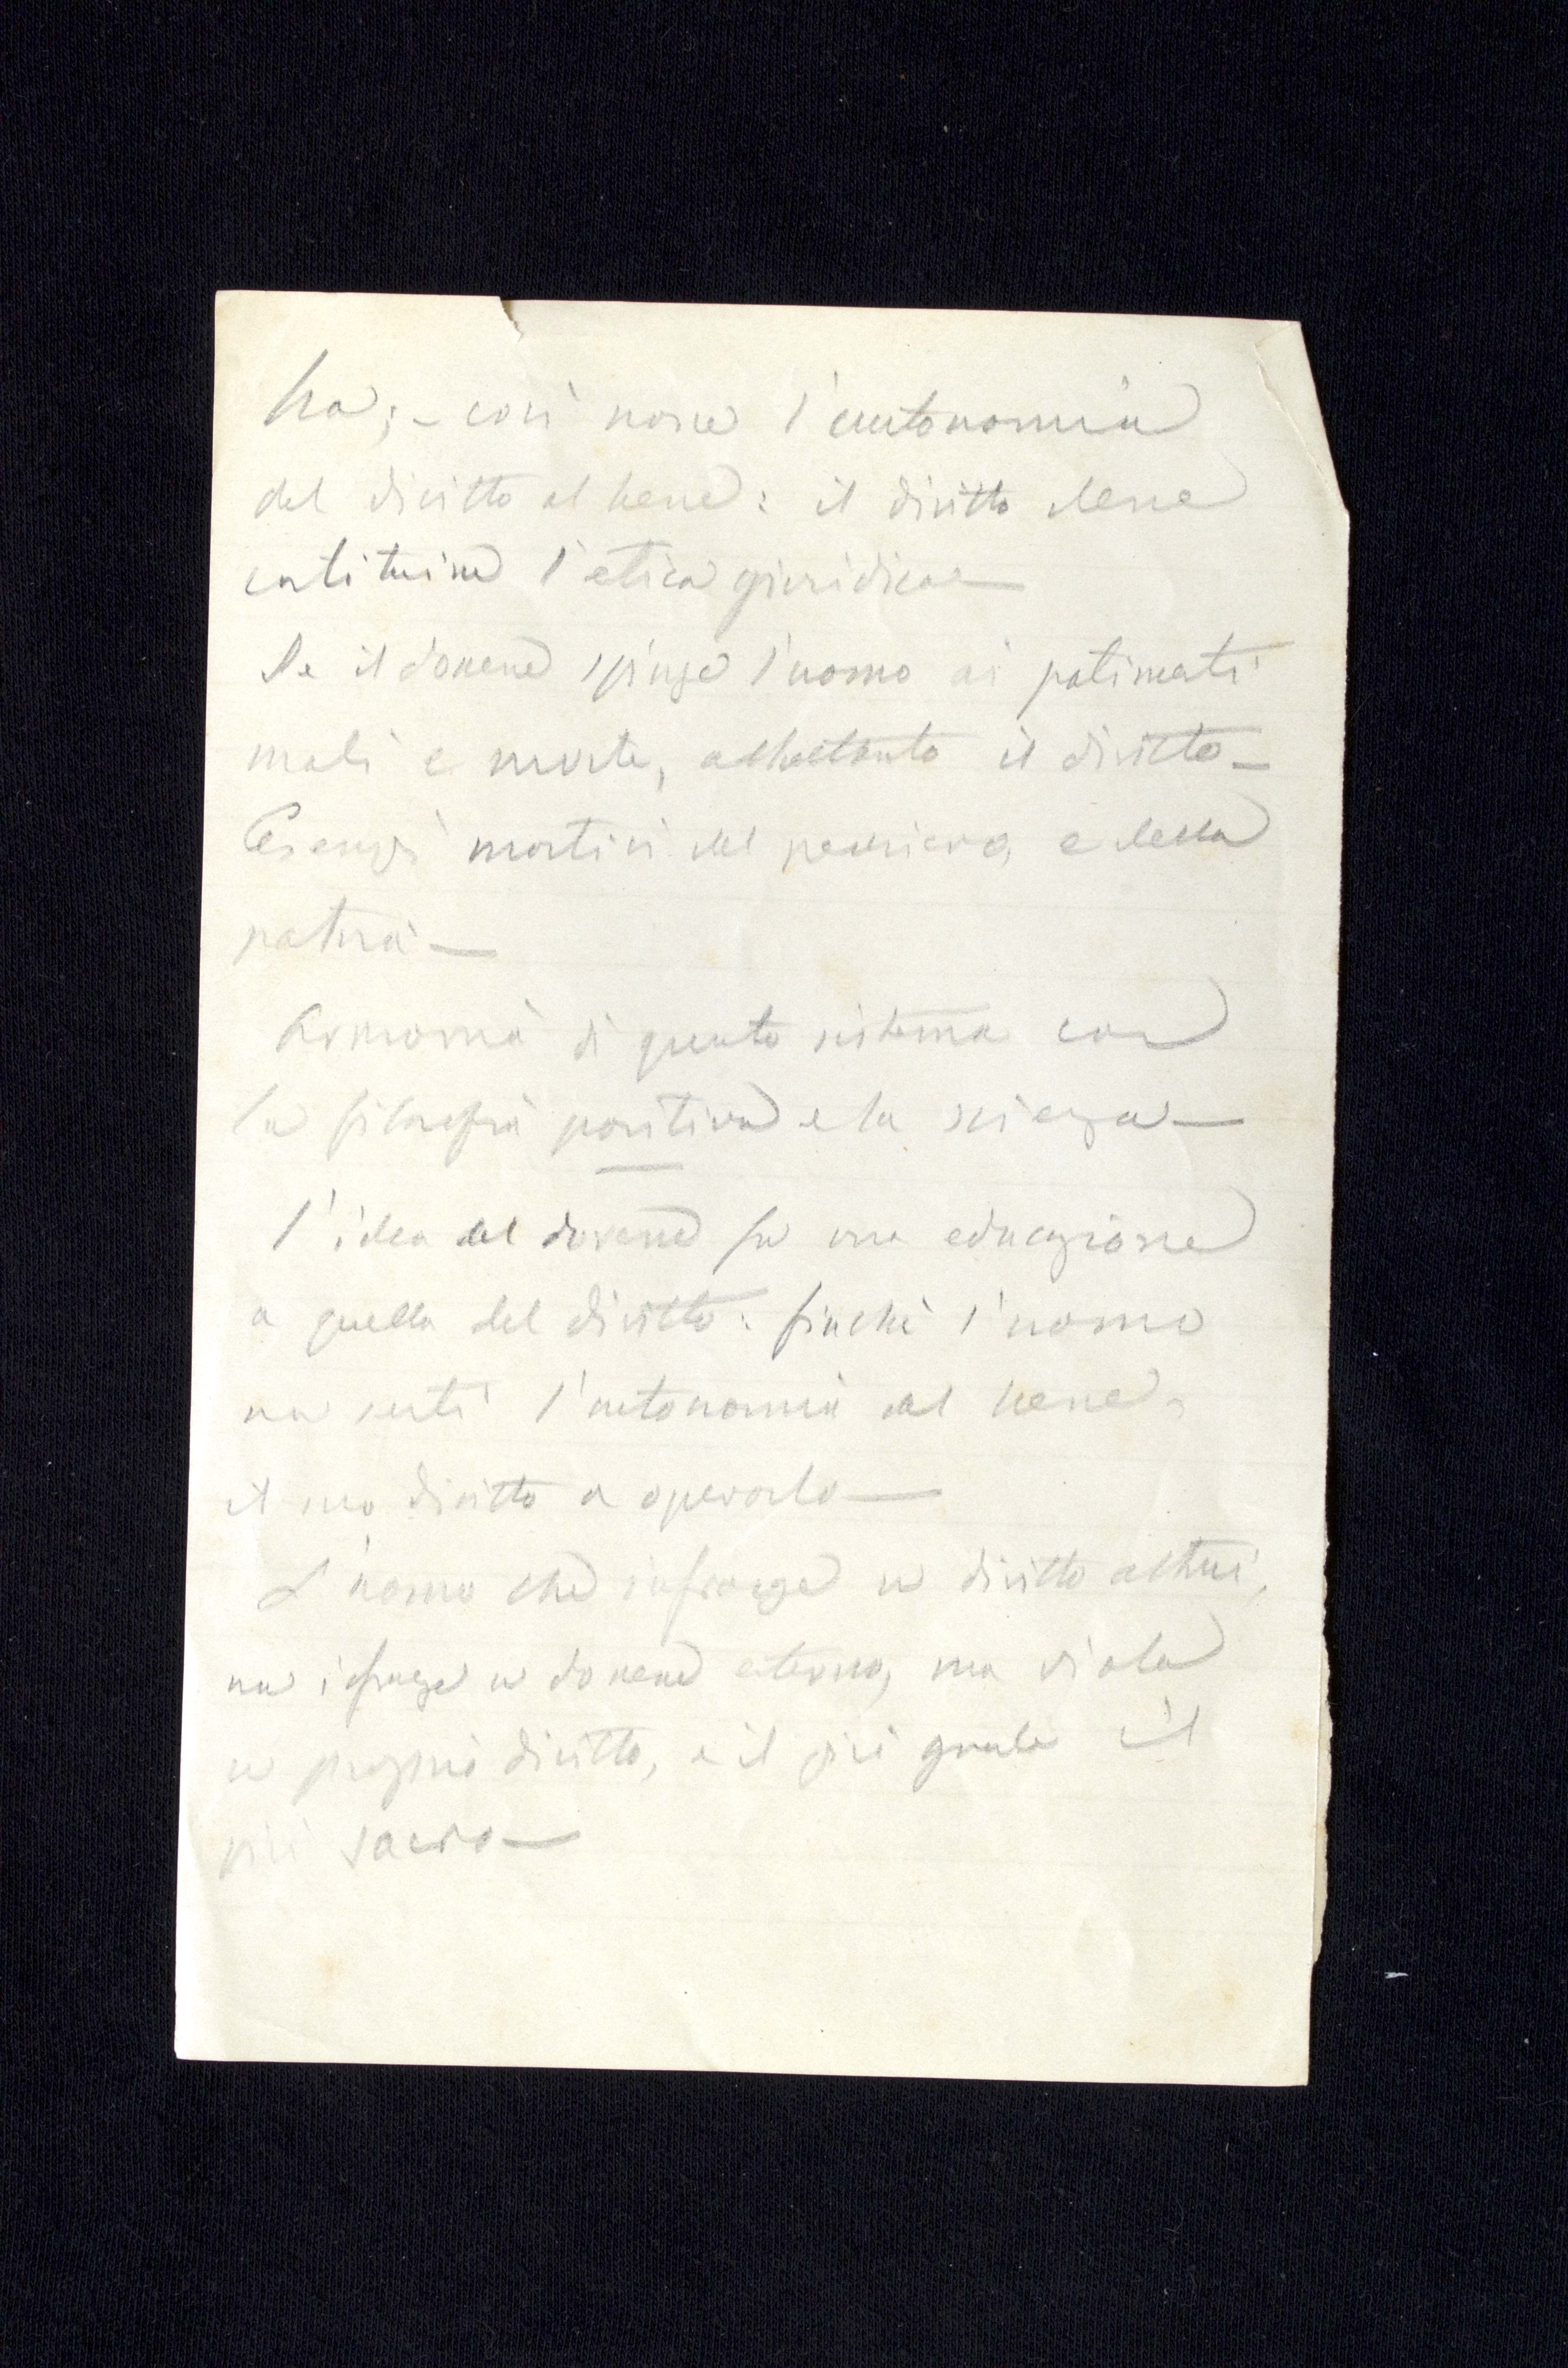 ha; - così nasce l'autonomia
del diritto al bene: il diritto deve
costituire l'etica giuridica —
Se il dovere spinge l'uomo ai patimenti
mali e morte, altrettanto il diritto —
Esempi martiri del pensiero, e della
patria —
Armonia di questo sistema con
la filosofia positiva e la scienza —
l'idea del dovere fu una educazione
a quella del diritto: finchè l'uomo
non sentì l'autonomia al bene,
il suo diritto a operarlo —
L'uomo che infrange un diritto altrui,
non infrange un dovere esterno, ma viola
un proprio diritto, e il più grande il
più sacro —